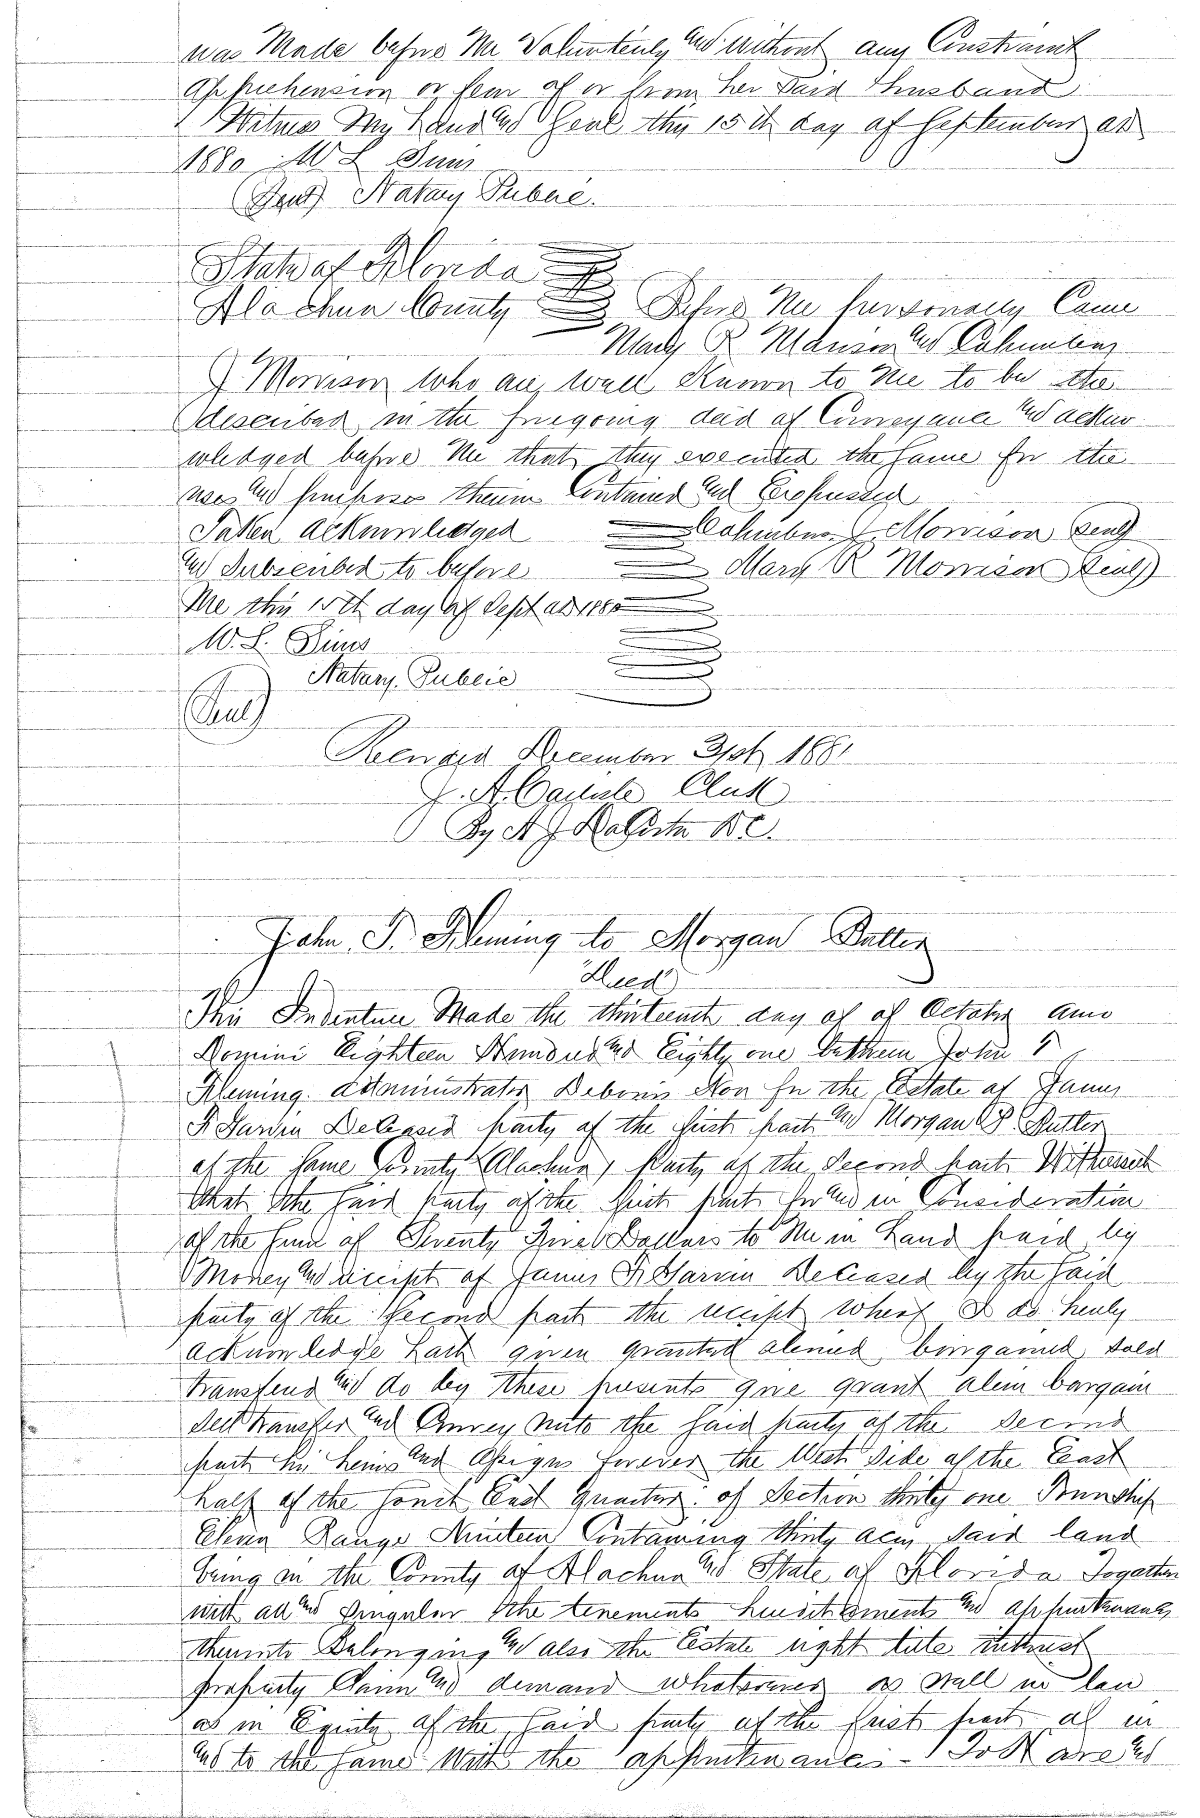 was Made before Me Voluntarily and without any Constraint
apprehension or fear of or from her said Husband
Witness My hand and Seal this 15th day of September AD
1880 W L Sims
(Seal) Notary Public.
State of Florida
Alachua County Before Me personally Came
Mary R Morrison and Columbus
J. Morrison who are well Known to Me to be the
described in the foregoing deed of Conveyance and ackno
wledged before Me that they executed the same for the
uses and purposes therein Contained and Expressed
Taken acknowledged Columbus J. Morrison (Seal)
and Subscribed to before Mary R Morrison (Seal)
Me this 15th day of Sept AD 1880
W. L. Sims
Notary Public
(Seal)
Recorded December 31st 1881
J. A. Carlisle Clerk
By A J DaCosta D.C.
John F. Fleming to Morgan Butler
"Deed"
This Indenture Made the thirteenth day of of October Anno
Domini Eighteen Hundred and Eighty one between John F
Fleming administrator Debonis Non for the Estate of James
F Garvin Deceased party of the first part and Morgan Butler
of the same County (Alachua) Party of the Second part Witnesseth
that the said party of the first part for and in Consideration
of the sum of Seventy Five Dollars to Me in hand paid by
Money and receipt of James F Garvin Deceased by the said
party of the Second part the receipt wherof I do hereby
acknowledge hath given granted aliened bargained sold
transferd and do by these presents give grant alien bargain
sell transfer and Convey unto the said party of the Second
part his heirs and assigns forever the West side of the East
half of the South East quarter of Section thirty one Township
Eleven Range Nineteen Containing thirty acres said land
being in the County of Alachua and State of Florida Together
with all and Singular the tenements hereditaments and appurtenances
thereunto Belonging and also the Estate right title interest
property Claim and demand whatsoever as well in law
as in Equity of the said party of the first part of in
and to the same With the appurtenances - To Have and